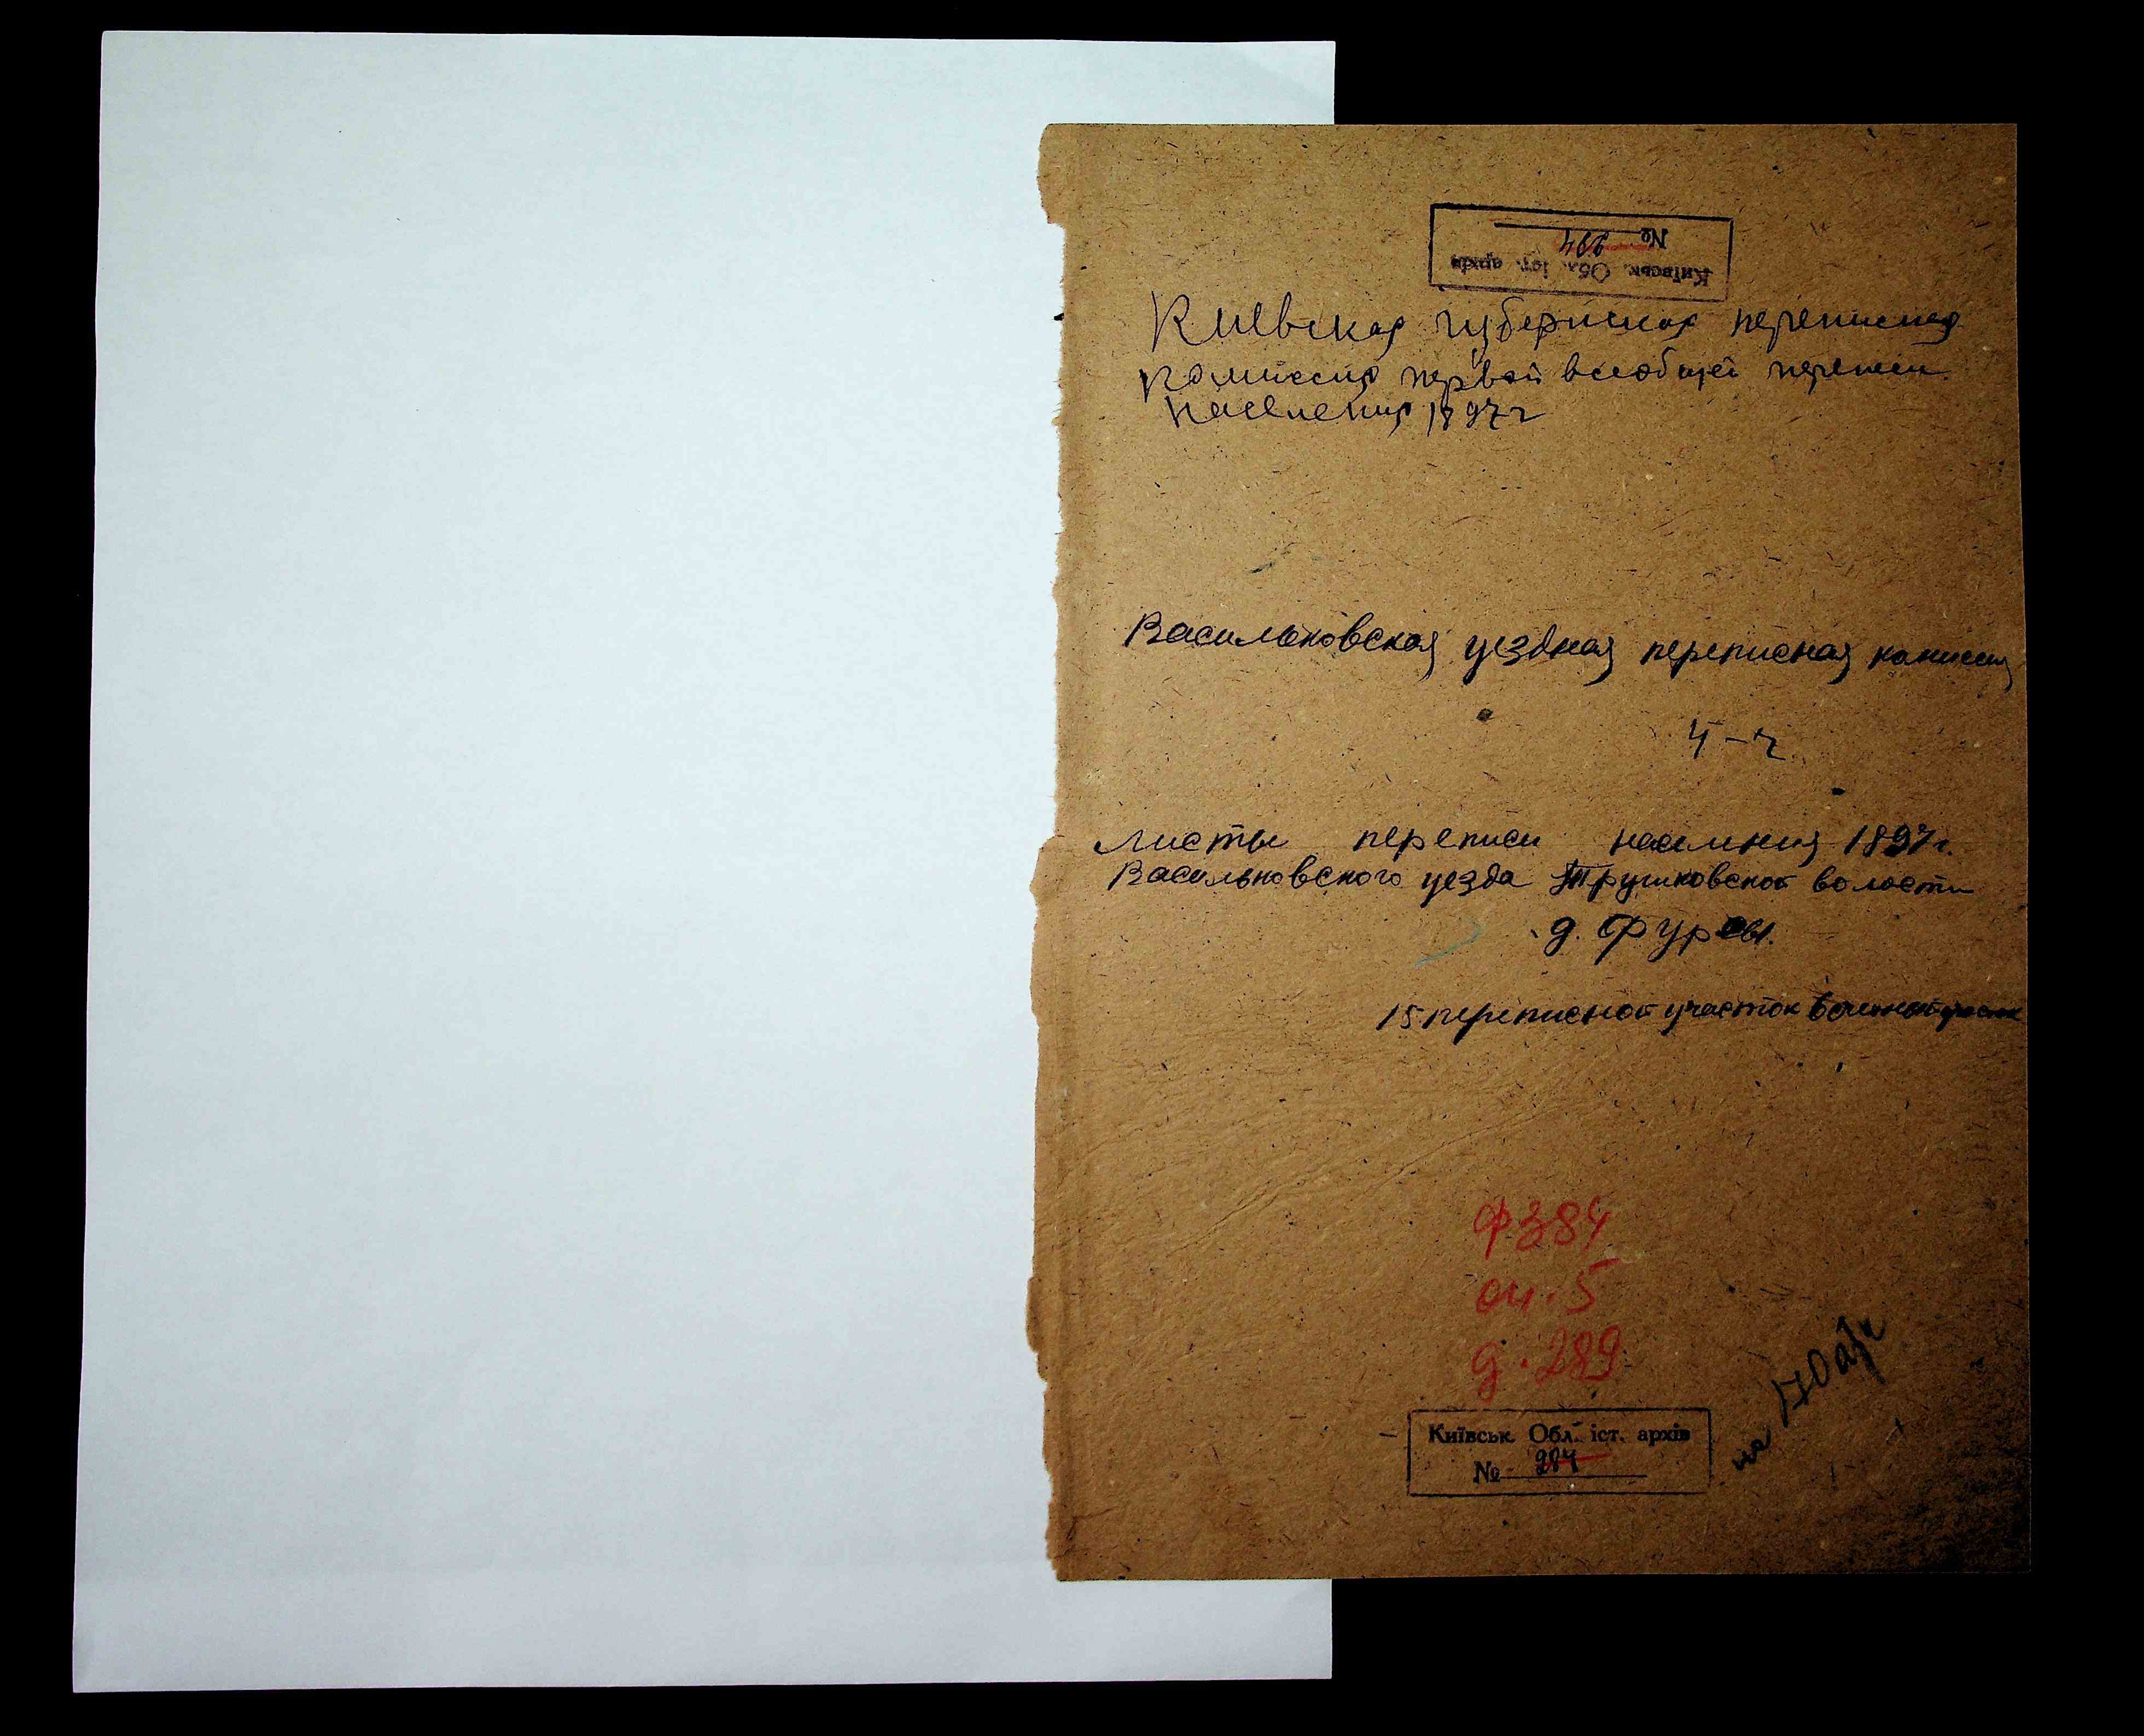 Київськ. Обл. іст. архів
№ 294
Киевская губернская переписная
комиссия первой всеобщей переписи
населения 1897 г
Васильковская уездная переписная комиссия
4-г
Листы переписи населения 1897 г.
Васильковского уезда Трушковской волости
д. Фурсы.
15 переписной участок 6 счетный участок
Ф 384
оп. 5
д. 289
на 170 арк
Київськ. Обл. іст. архів
№ 294